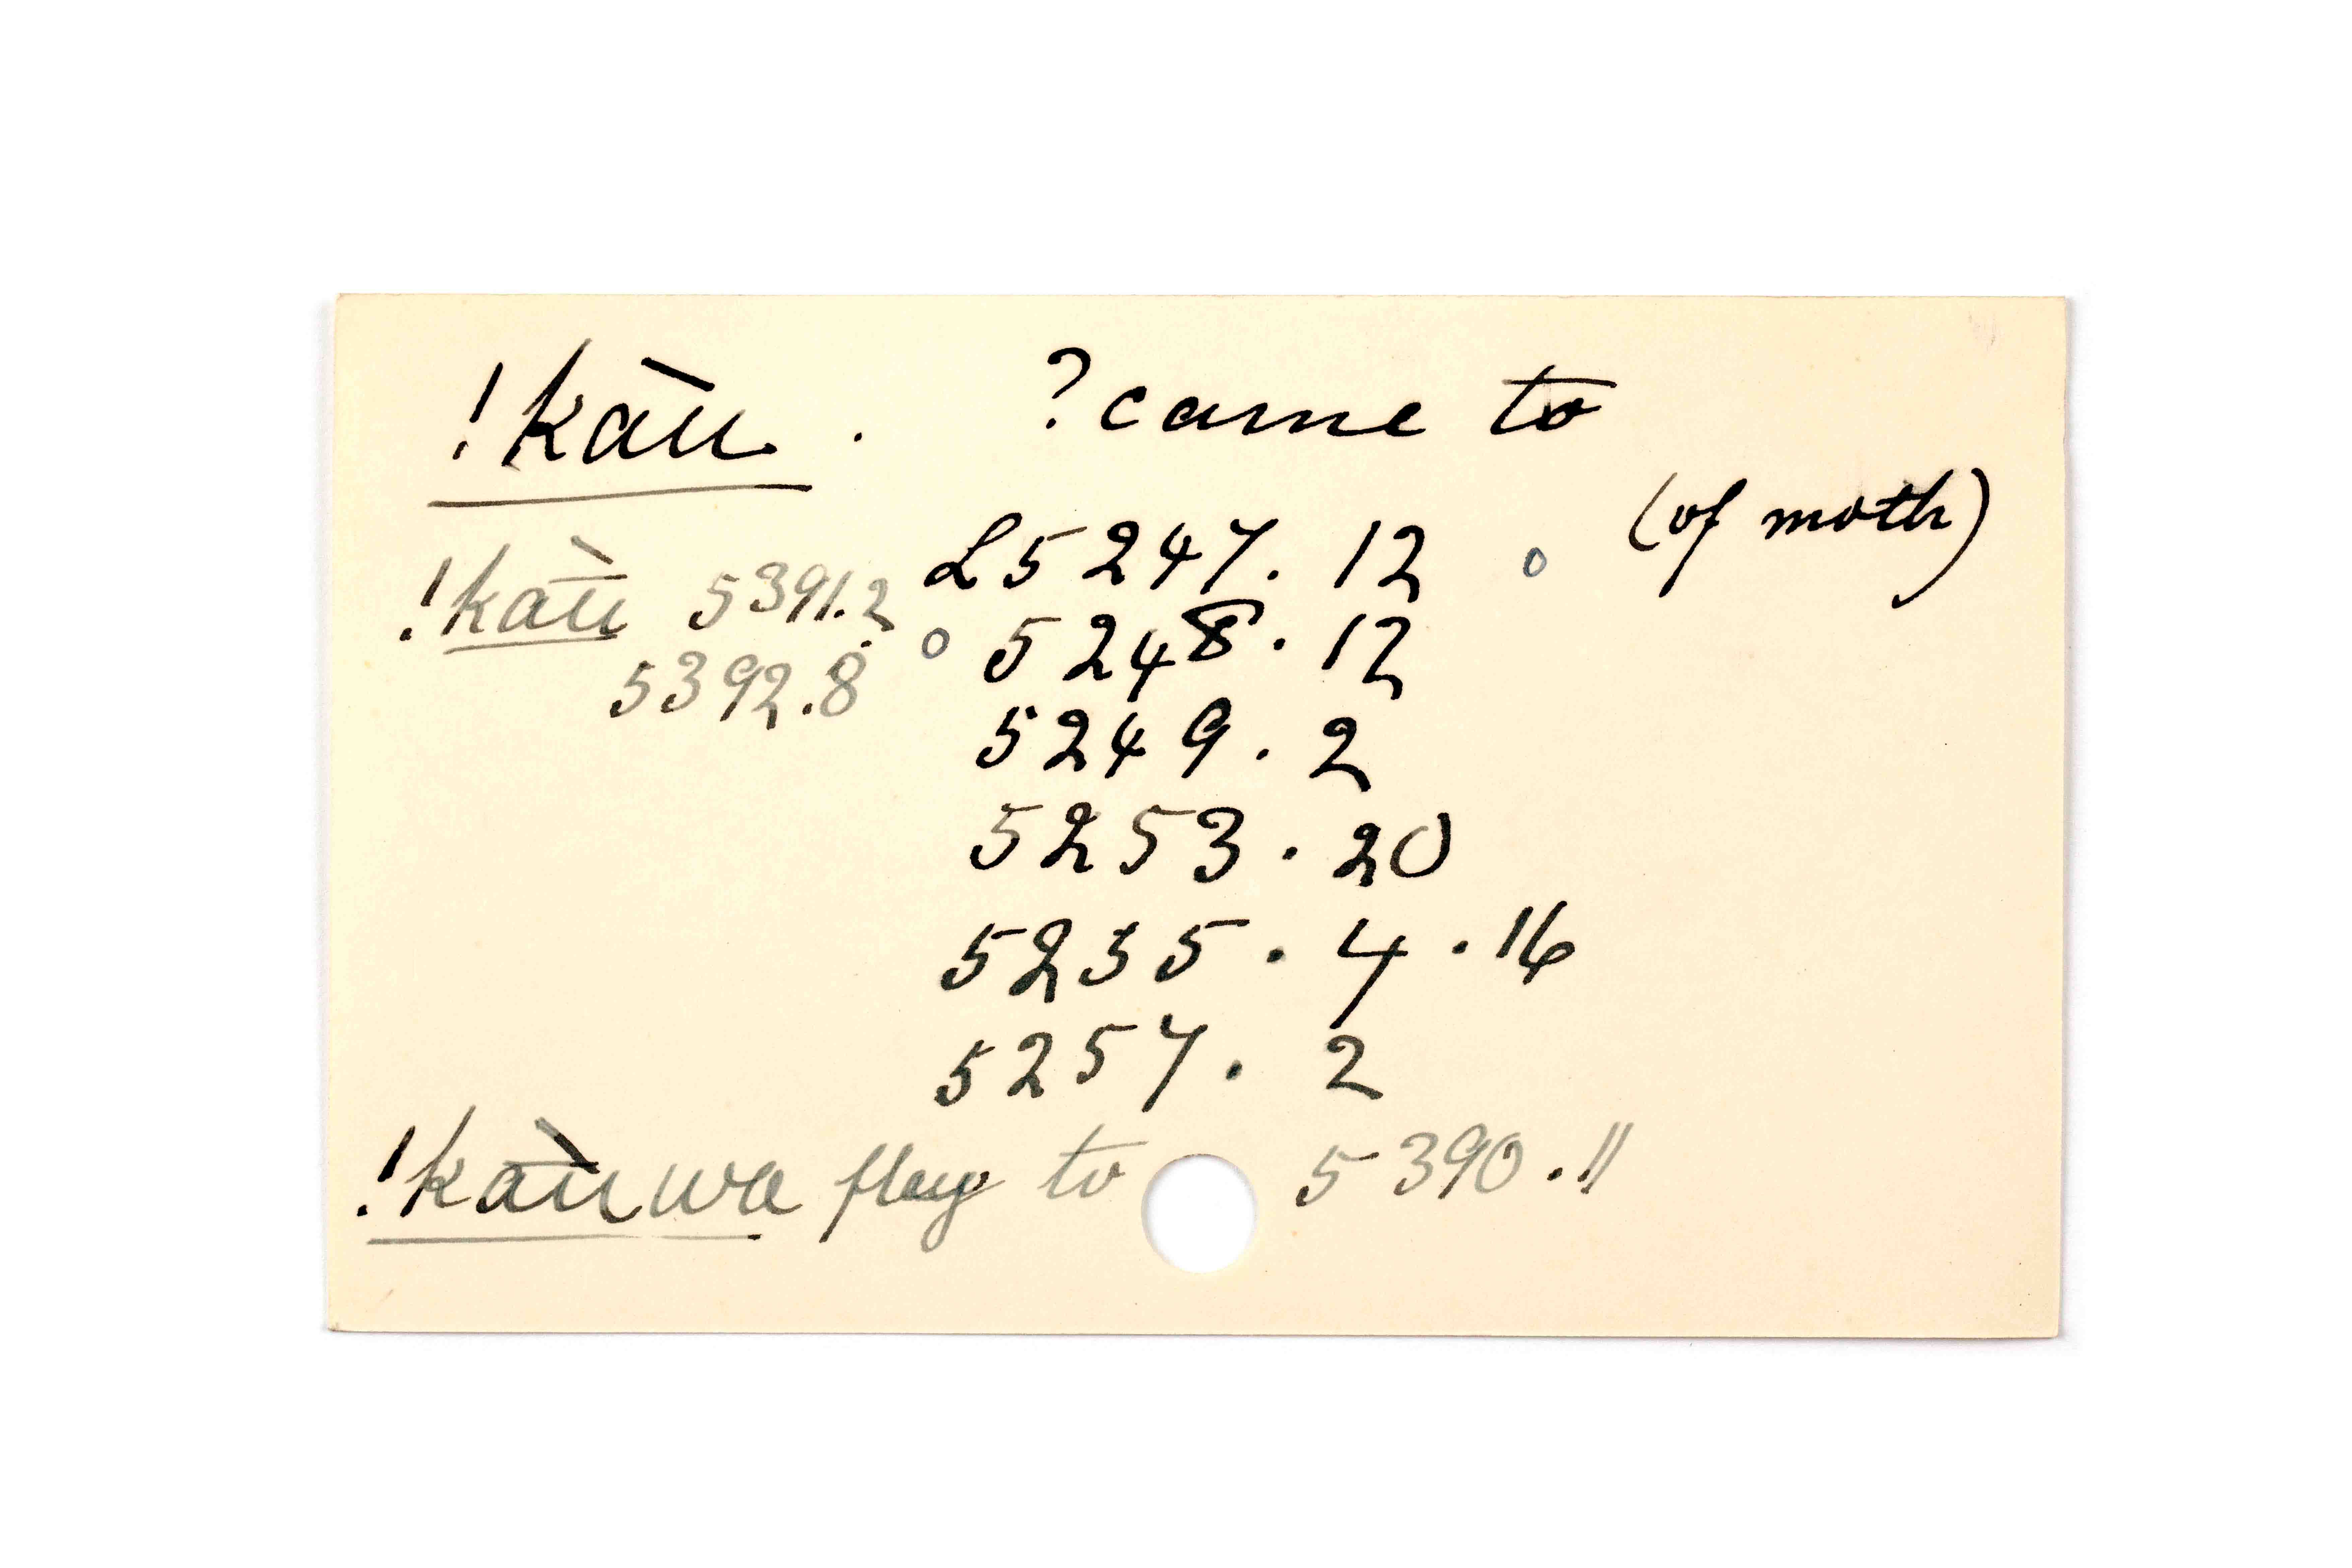 !kau̅̀. ?came to
(of moth)
L5247. 12 o
!kau̅̀ 5391.2 o 5248. 12
5392.8
5249. 2
5253. 20
5235. 4. 16
5257. 2
!kau̅̀wa flay to 5390.11